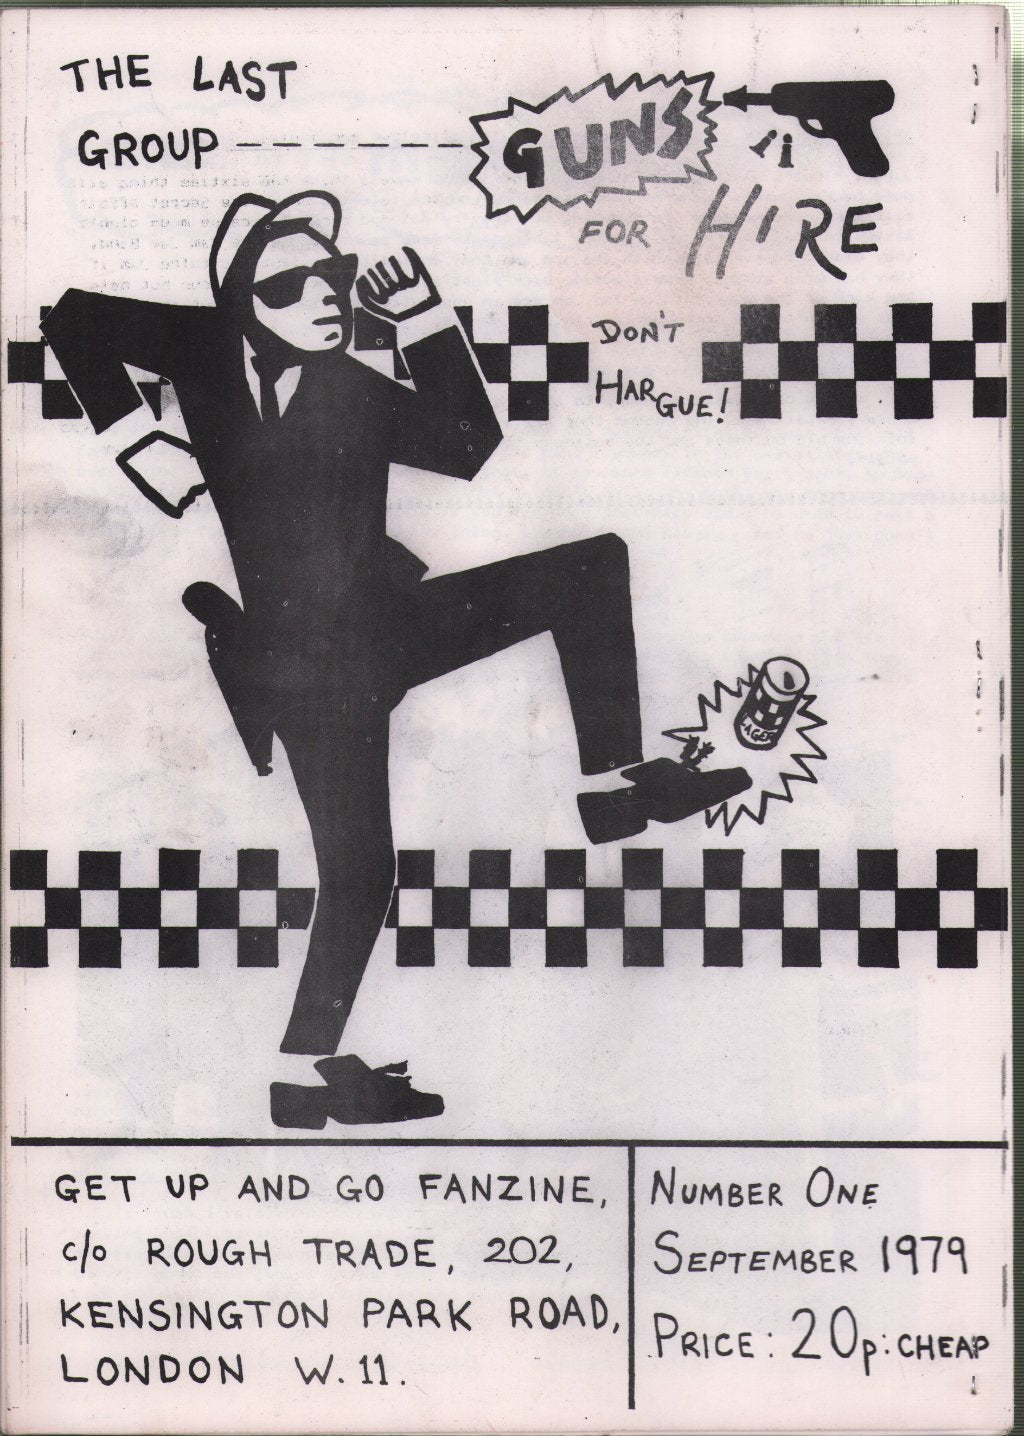 THE LAST
GROUP------
GUNS
FOR HIRE
DON'T
HARGUE!
LAGER
GET UP AND GO FANZINE,
c/o ROUGH TRADE, 202,
KENSINGTON PARK ROAD,
LONDON W.11.
NUMBER ONE
SEPTEMBER 1979
PRICE: 20p: CHEAP